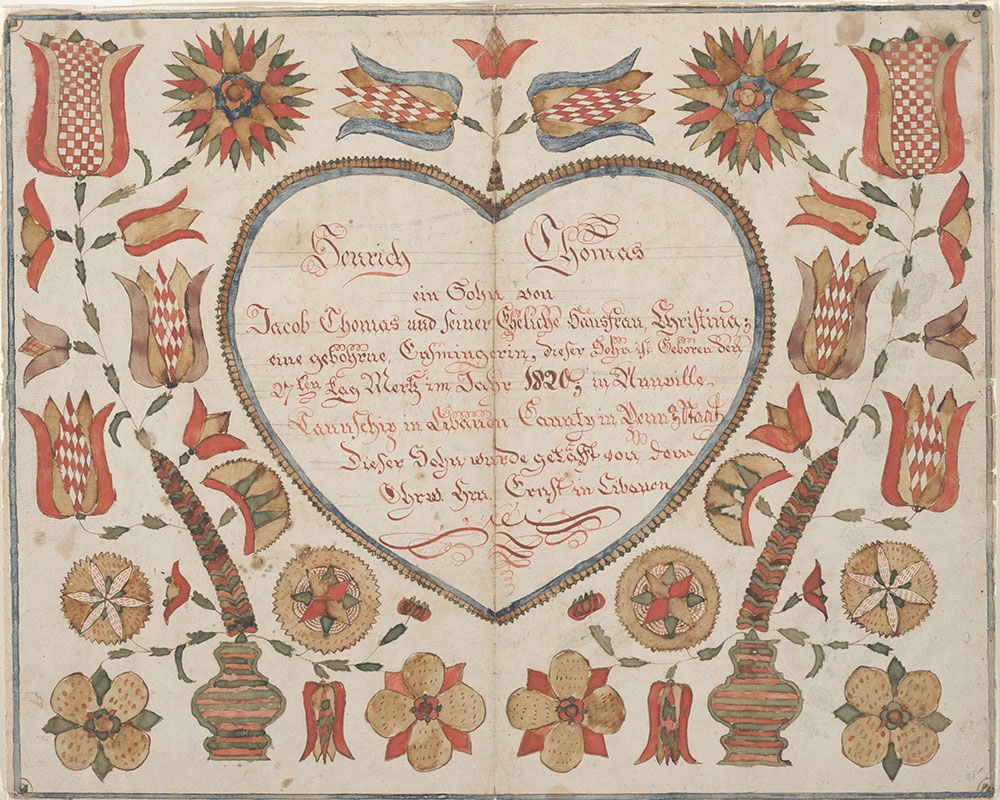 Henrich Thomas
ein Sohn von
Jacob Thomas und seiner Eheliche Hausfrau, Christina;
eine gebohrne, dieser Sohn ist Geboren den
ten Tag Mertz im Jahr in Annville
Taunschip in Libanon Caunty in Penn: Staat
Dieser Sohn wurde getäfft von dem
Ehrw. Hrn. Ernst in Libanon